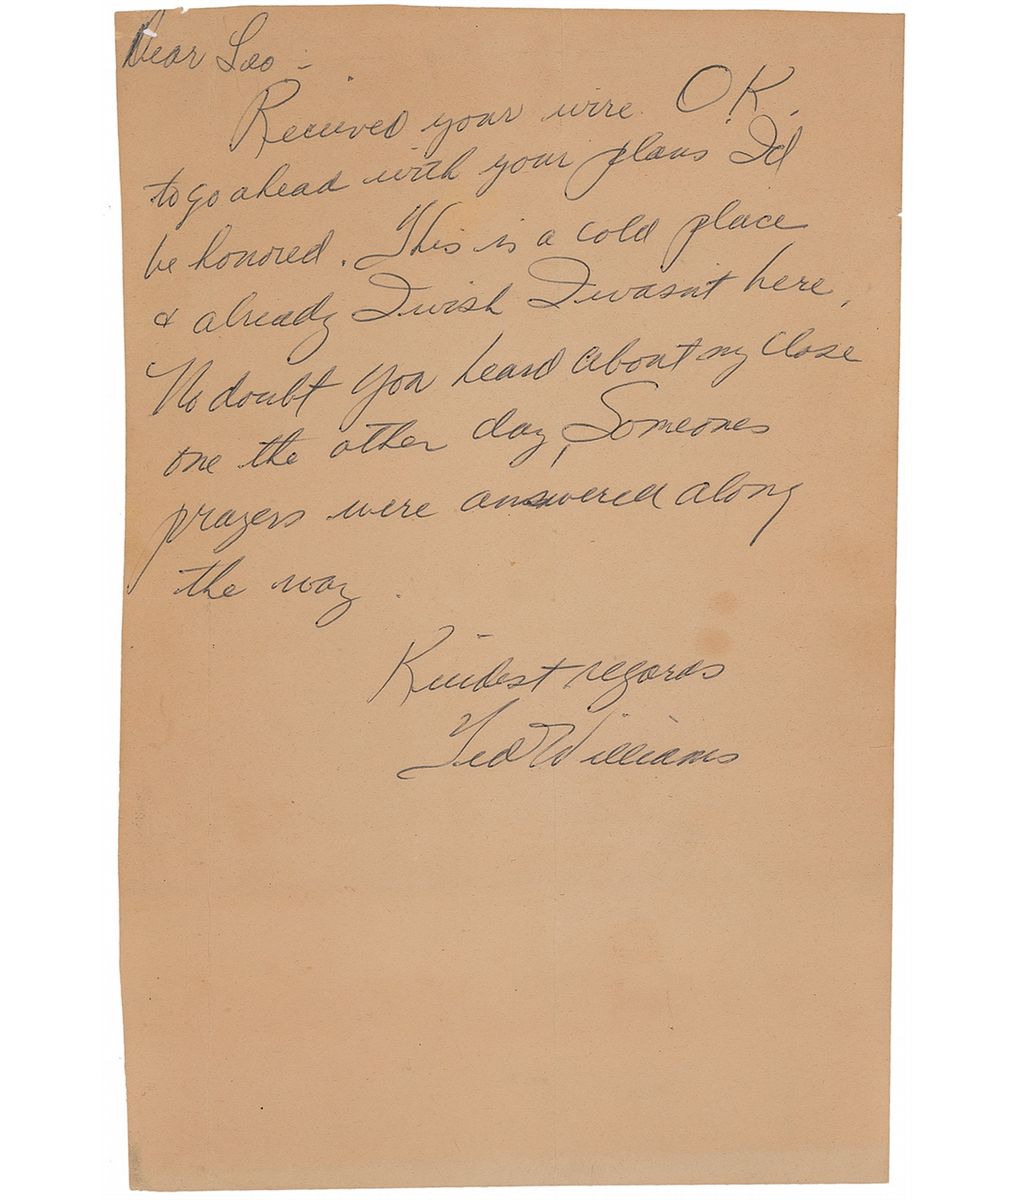 Dear Leo -
Received your wire. O.K.
to go ahead with your plans I'd
be honored. This is a cold place
& already I wish I wasn't here.
No doubt you heard about my close
one the other day, Someones
prayers were answered along
the way.
Kindest regards
Ted Williams